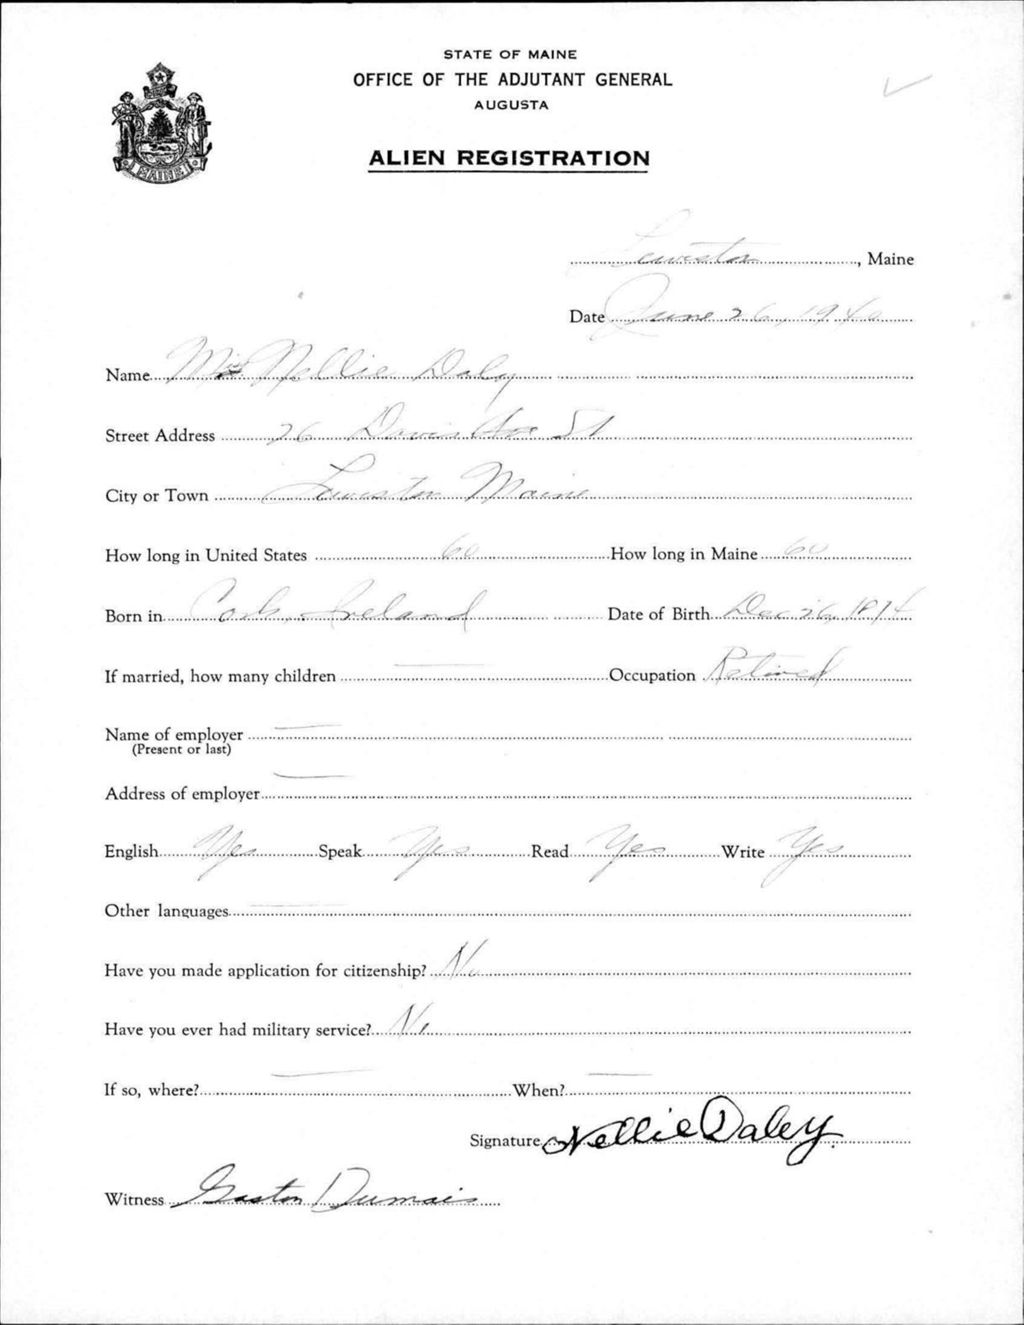 STATE OF MAINE
OFFICE OF THE ADJUTANT GENERAL
AUGUSTA
ALIEN REGISTRATION
MAINE
Lewiston, Maine
Date June 26, 1940
Name Miss Nellie Daley
Street Address 26 St
City or Town Lewiston Maine
How long in United States 60 How long in Maine 60
Born in Cork, Ireland Date of Birth Dec 26, 1874
If married, how many children Occupation Retired
Name of employer
(Present or last)
Address of employer
English Yes Speak Yes Read Yes Write Yes
Other languages
Have you made application for citizenship? No
Have you ever had military service? No
If so, where? When?
Signature Nellie Daley
Witness Gaston Dumais